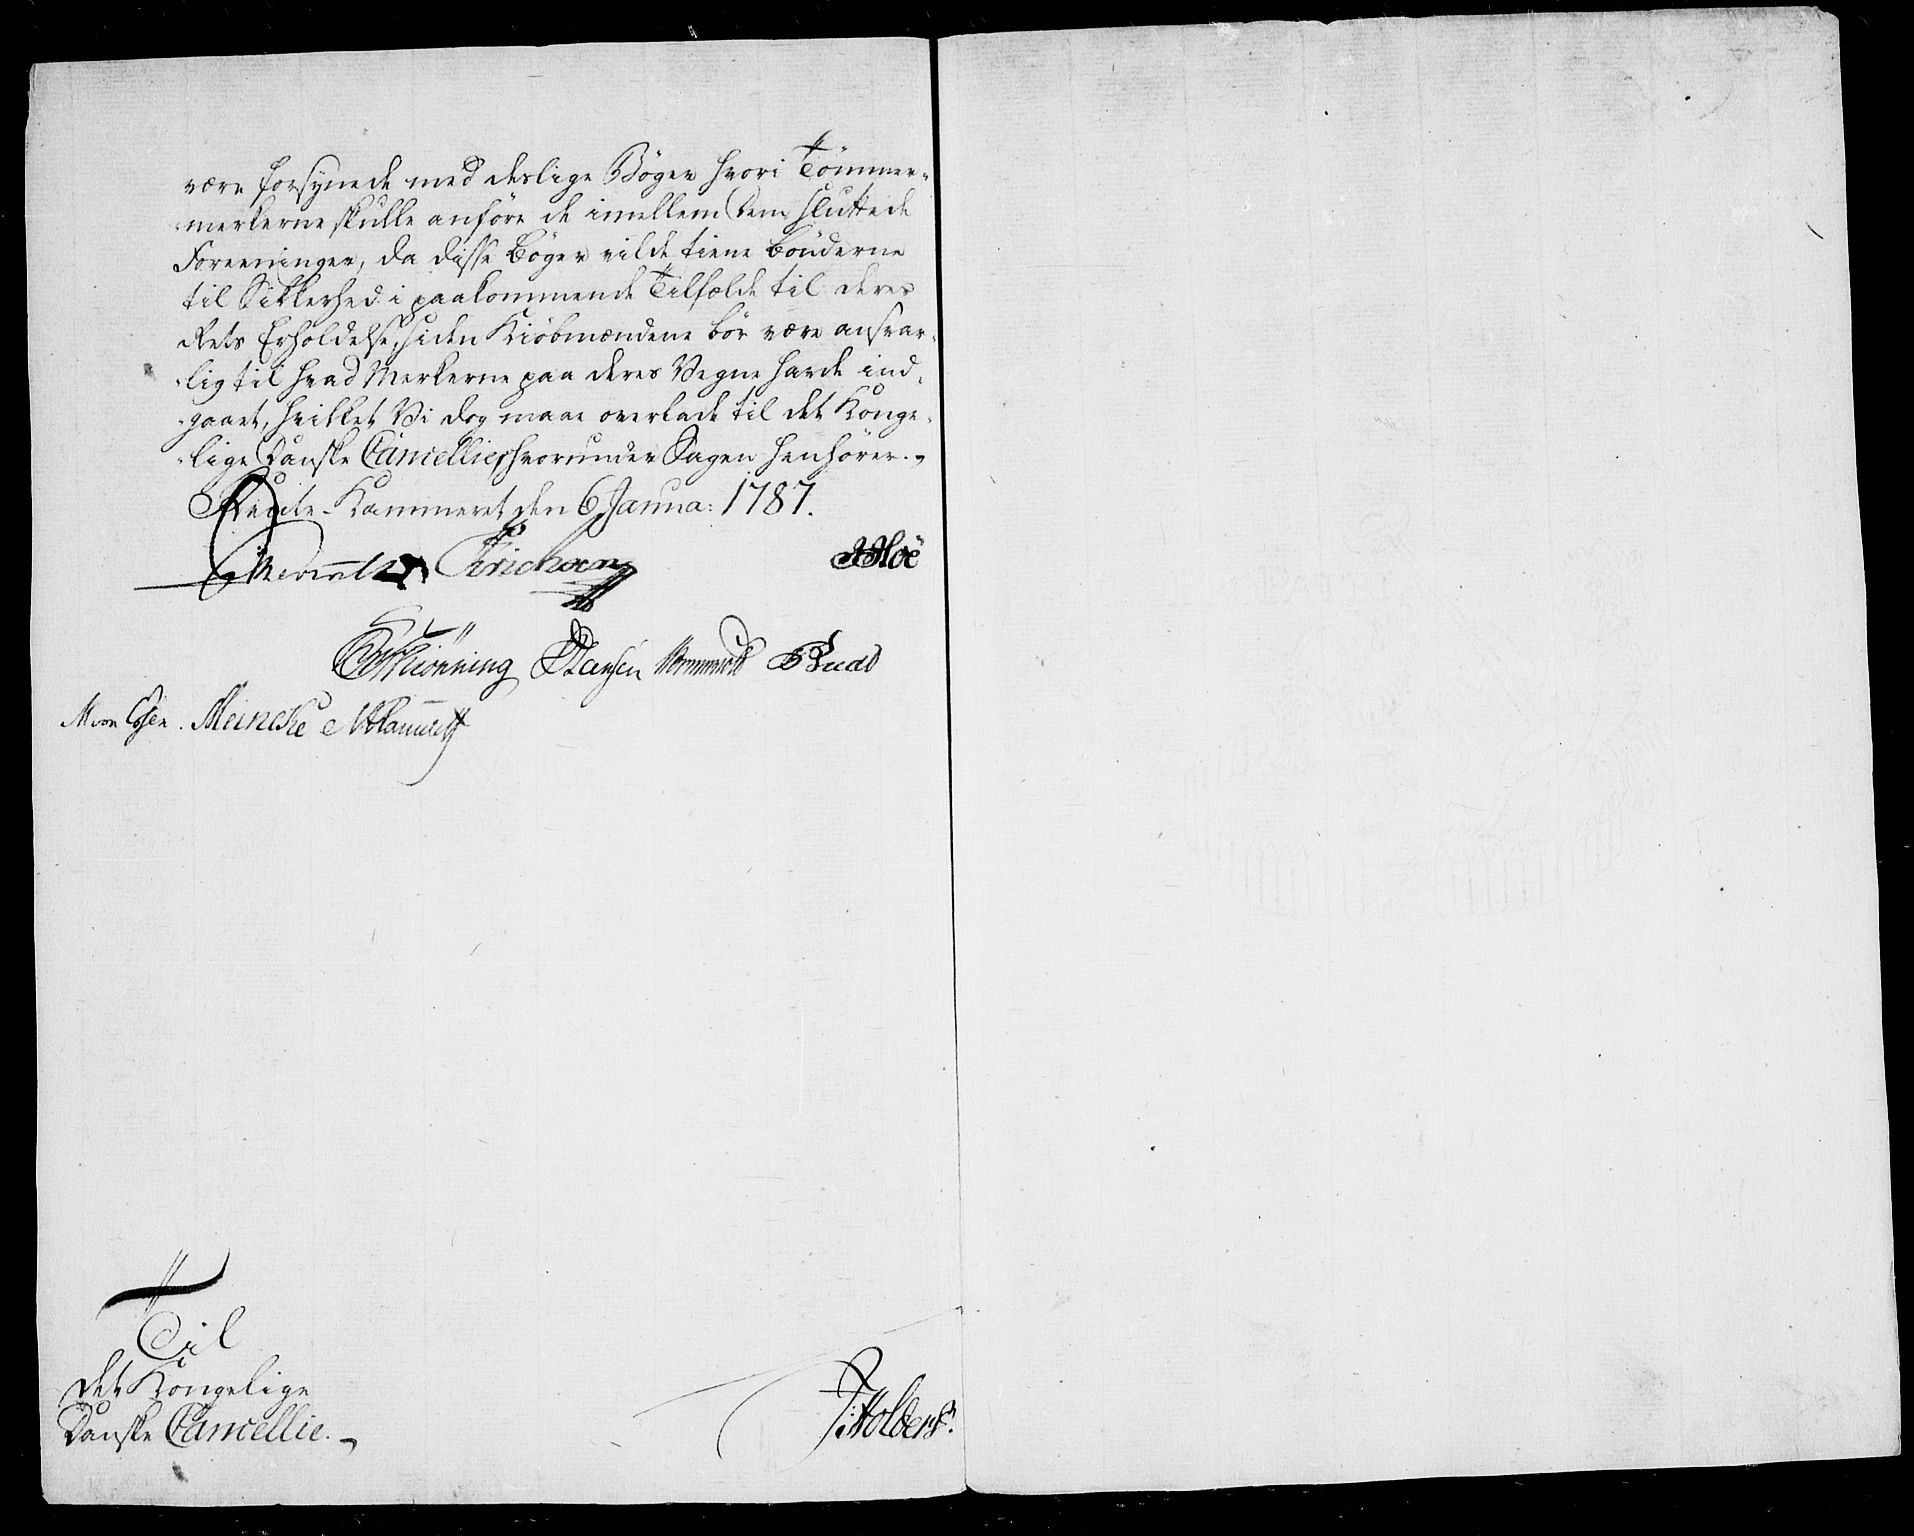 være forsynede med deslige Bøger hvori Tömmer-
merkerne skulle anföre de imellem dem sluttede
Foreeninger, da disse Bøger vilde tiene bönderne
til Sikkerhed i paakommende Tilfælde til deres
Rets Erholdelse, siden Kiöbmændene bör være ansvar-
lig til hvad Merkerne paa deres Vegne havde ind-
gaaet, hvilket Vi dog maae overlade til det Konge-
lige Danske Cancellie, hvorunder Sagen henhörer.
Rente-Kammeret den 6 Janua: 1787.
Erichsen Hoë
Hansen
Meincke
Til
det Kongelige
Danske Cancellie.